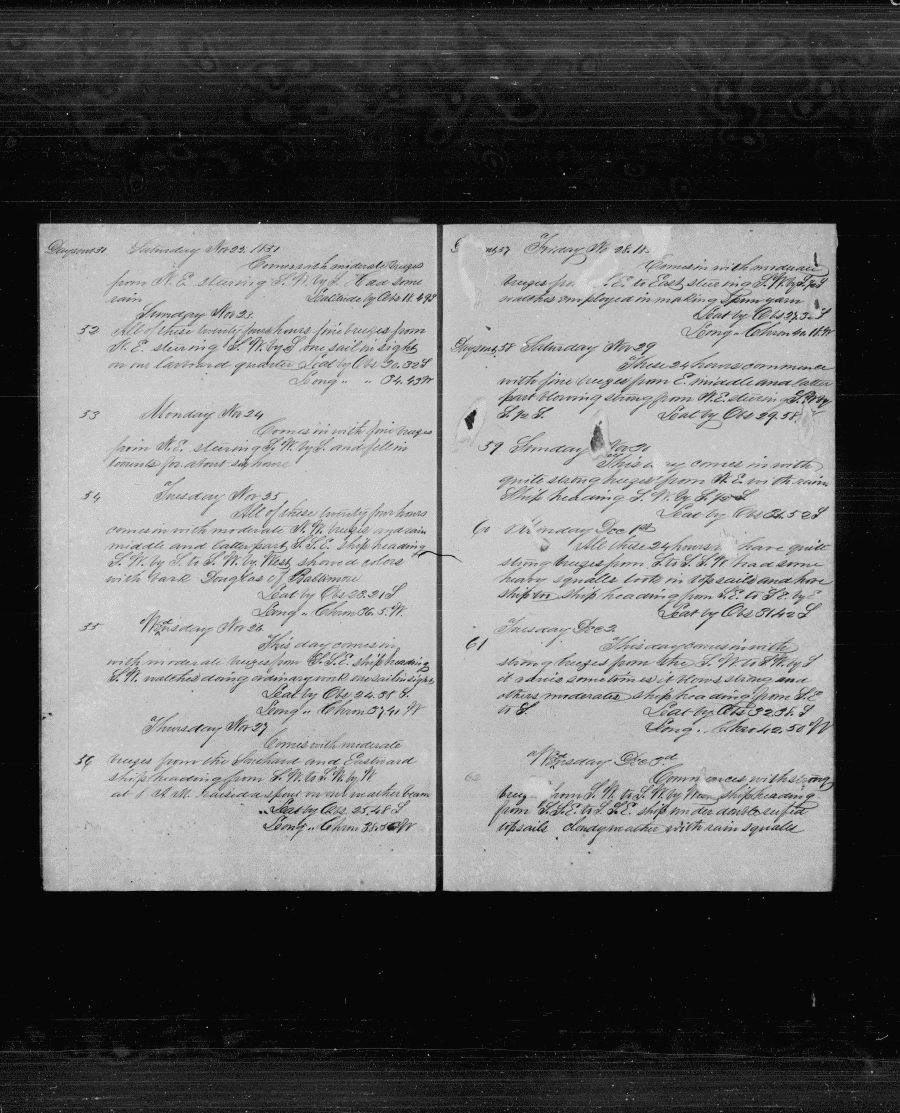 Days out 51 Saturday Nov 22. 1851
Comes with moderate breezes
from N.E. steering S.W. by S. Had some
rain Latitude by Obs 18.49 S
Sunday Nov 23
52 All of these twenty four hours fine breezes from
N.E. steering S.W. by S one sail in sight
on our larboard quarter Lat by Obs 20.32 S
Long " " 34.43 W
53 Monday Nov 24
Comes in with fine breezes
from N.E. steering S.W. by S. and fell in
for about six hours
54 Tuesday Nov 25
All of these twenty four hours
comes in with moderate N.W. breezes and rain
middle and latter part S.S.E. ship heading
S.W. by S. to S.W. by West showed colors
with Bark Douglas of Baltimore
Lat by Obs 23.21 S
Long " Chron 36.5 W
55 Wednesday Nov 26
This day comes in
with moderate breezes from S.S.E. ship heading
S.W. watches doing ordinary work one sail in sight
Lat by Obs 24.38 S.
Long " Chron 37.41 W
Thursday Nov 27
Comes with moderate
56 breezes from the Southard and Eastward
ship heading from S.W. to S.W. by W
at 8 A.M. raised a spout on our weather beam
" Lat by Obs 25.48 S
Long " Chron 38.50 W
57 Friday No 28
Comes in with moderate
breezes from E. to East steering S.W. by S
watches employed in making spun yarn
Lat by Obs 27.32 S
Long " Chron 40.18 W
Days out 58 Saturday Nov 29
These 24 hours commence
with fine breezes from E. middle and latter
part blowing strong from N.E. steering S.W. by
S. 1/2 S. Lat by Obs 29.58
59 Sunday Nov 30
This day comes in with
quite strong breezes from N.E. with rain
Ship heading S.W. by S. 1/2 S
Lat by Obs 31.52 S
60 Monday Dec 1st
All these 24 hours have quite
strong breezes from S. to S.S.W. had some
heavy squalls took in topsails and hove
ship to ship heading from S.E. to S.E. by E
Lat by Obs 31.42 S
Tuesday Dec 2
61 This day comes in with
strong breezes from the S.W. to S.W. by S
it varies sometimes it blows strong and
others moderate ship heading from S.E
to S. Lat by Obs 32.31 S
Long " Chron 42.50 W
Wednesday Dec 3rd
62 Commences with strong
breezes from S.W. to S.W. by West ship heading
from S.S.E. to S.S.E. ship under double reefed
topsails cloudy weather with rain squalls